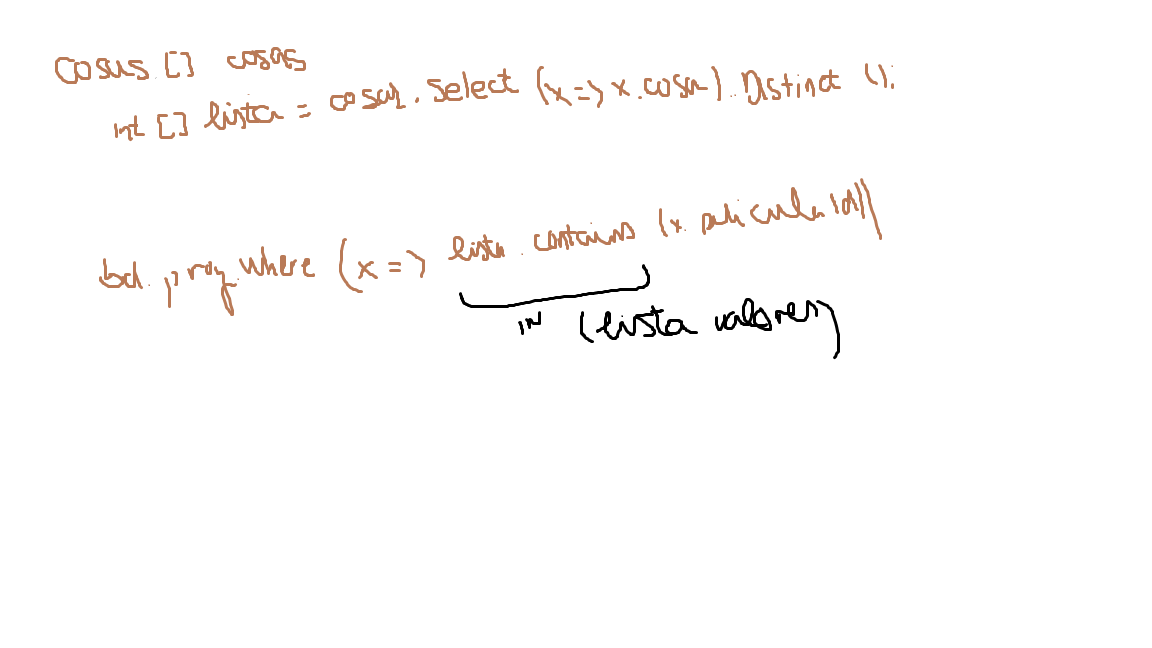 Cosas [] cosas
int [] lista = cosas. Select (x => x.cosa). Distinct ();
bd. proy. where (x => lista. contains (x. peliculaId))
IN (lista valores)